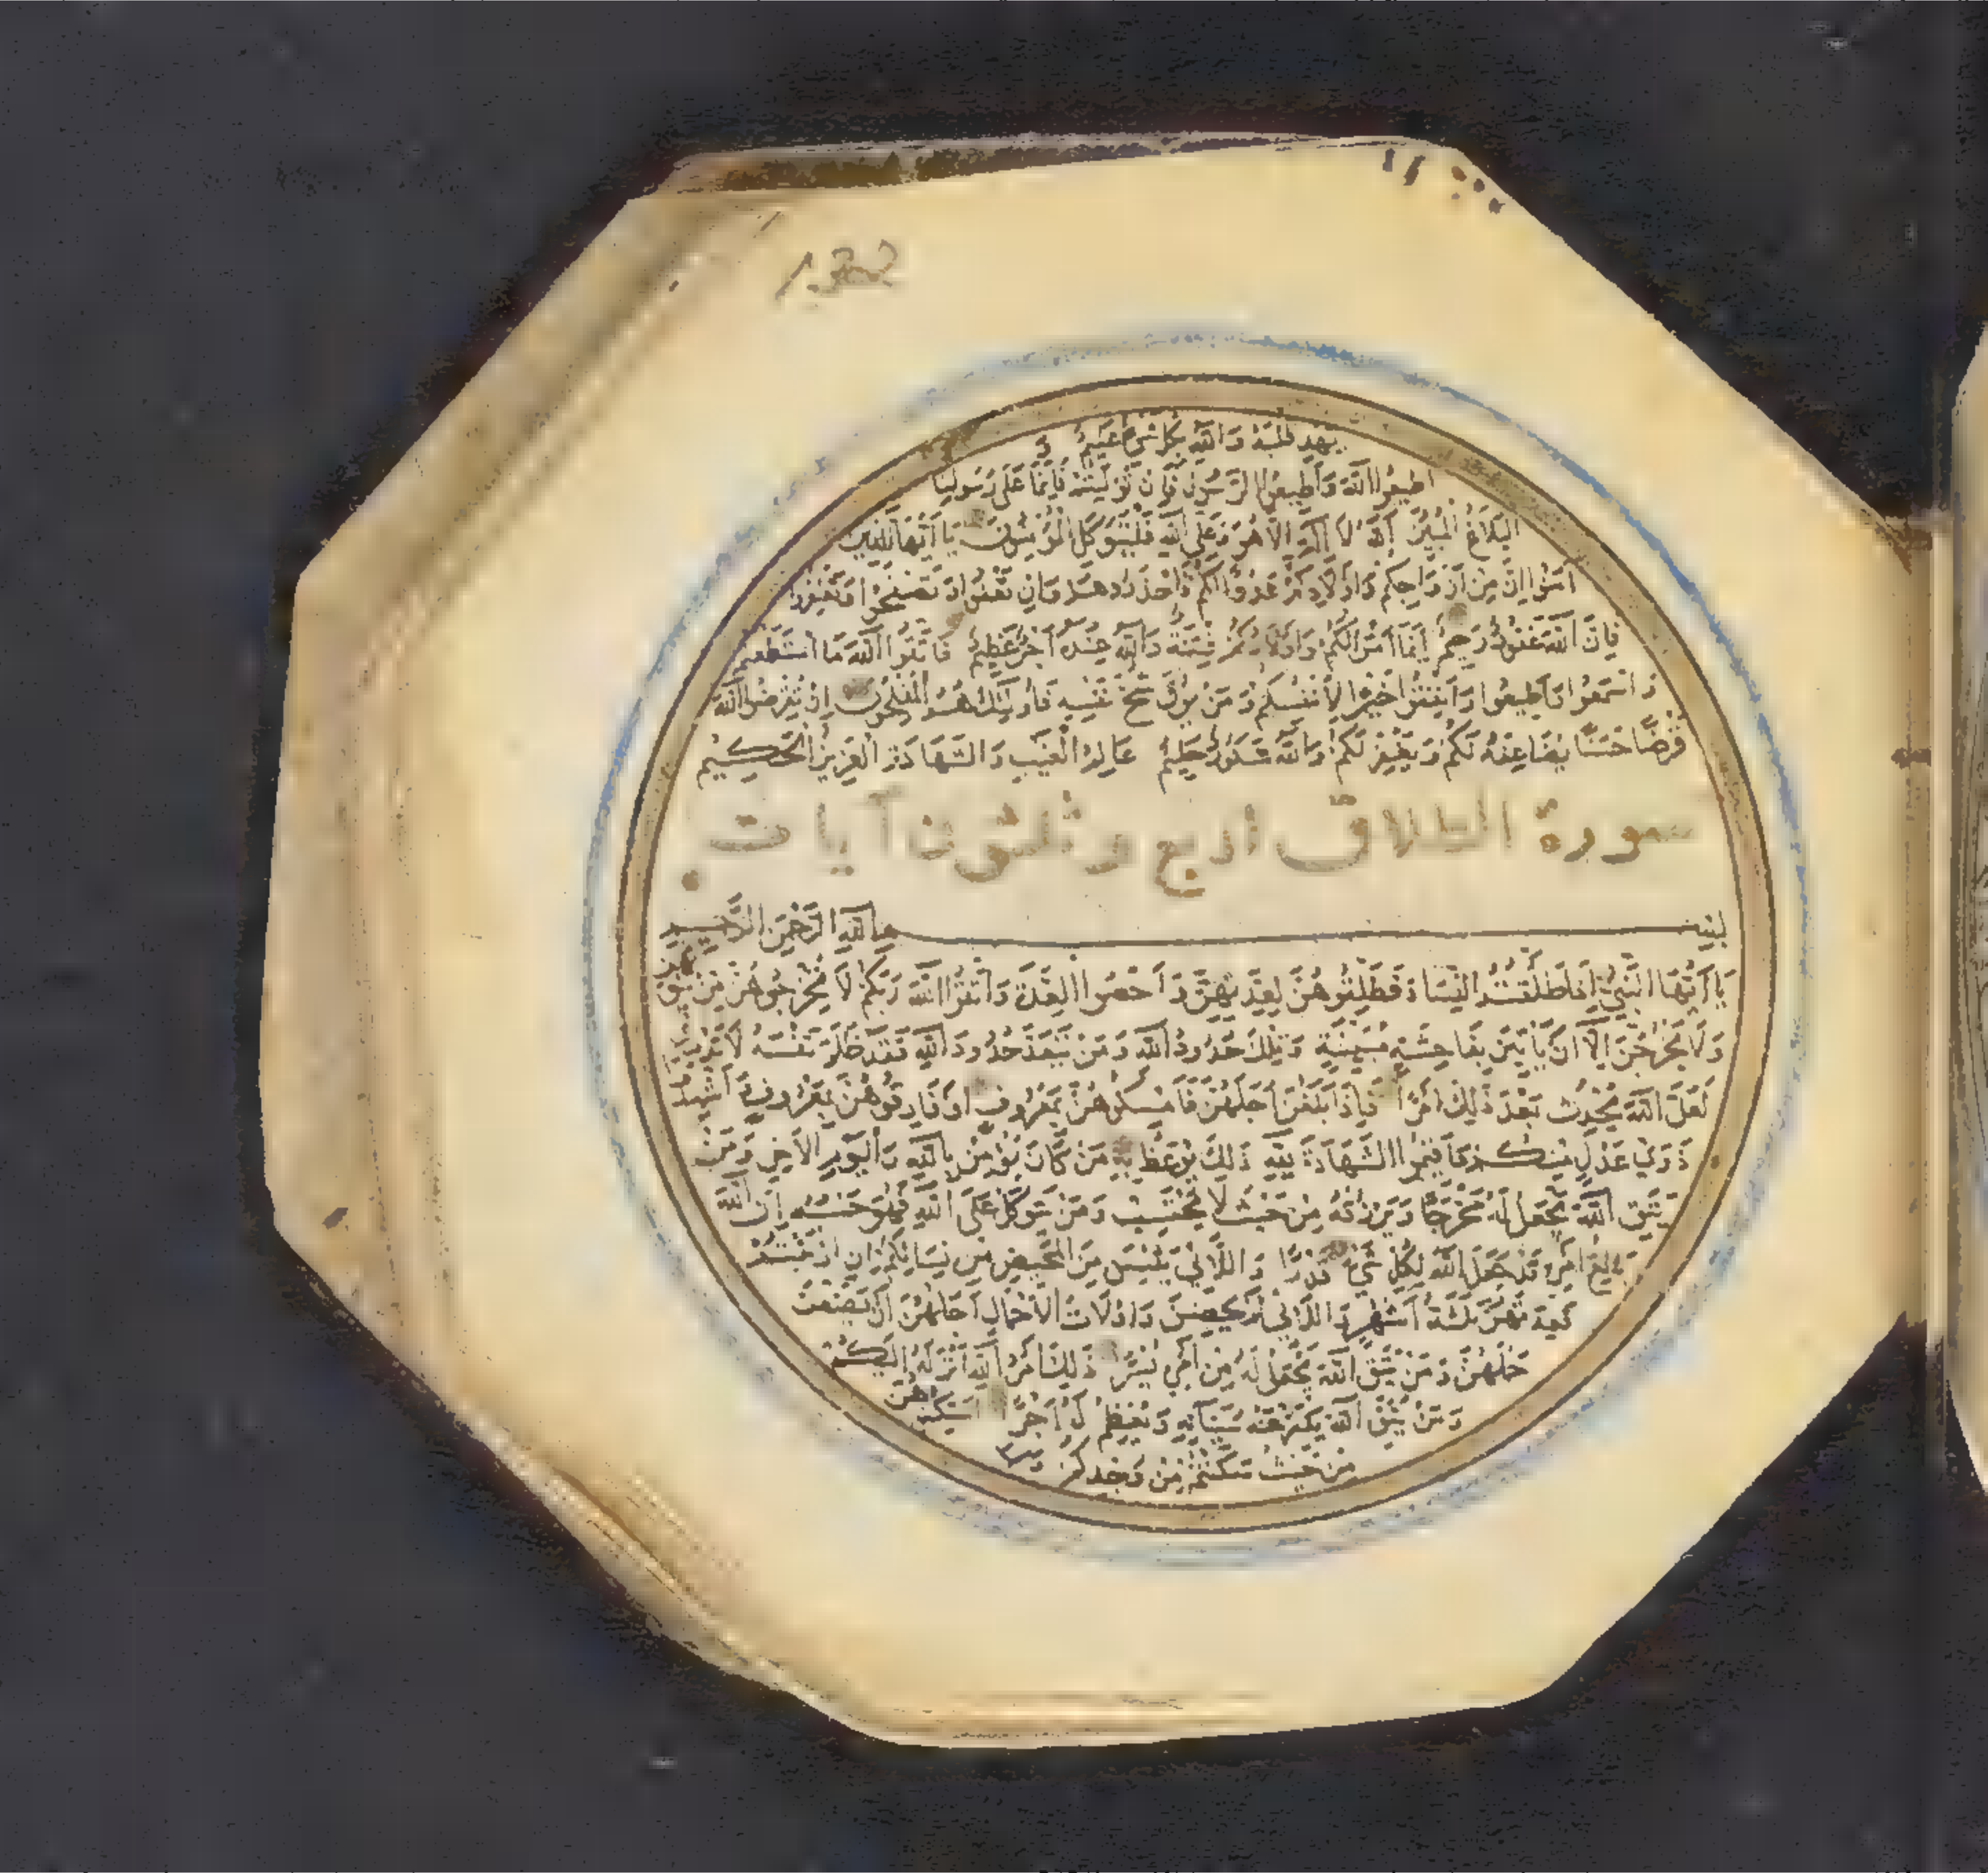 يَهْدِ قَلْبَهُ وَاللَّهُ بِكُلِّ شَيْءٍ عَلِيمٌ وَ
اَطِيعُوا اللَّهَ وَأَطِيعُوا الرَّسُولَ فَإِنْ تَوَلَّيْتُمْ فَإِنَّمَا عَلَى رَسُولِنَا
الْبَلَاغُ الْمُبِينُ اَللَّهُ لَا اِلَهَ اِلَّا هُوَ وَعَلَى اللَّهِ فَلْيَتَوَكَّلِ الْمُؤْمِنُونَ يَا أَيُّهَا الَّذِينَ
آمَنُوا اِنَّ مِنْ اَزْوَاجِكُمْ وَاَوْلَادِكُمْ عَدُوًّا لَكُمْ فَاحْذَرُوهُمْ وَاِنْ تَعْفُوا وَتَصْفَحُوا وَتَغْفِرُوا
فَاِنَّ اللَّهَ غَفُورٌ رَحِيمٌ اِنَّمَا اَمْوَالُكُمْ وَاَوْلَادُكُمْ فِتْنَةٌ وَاللَّهُ عِنْدَهُ اَجْرٌ عَظِيمٌ فَاتَّقُوا اللَّهَ مَا اسْتَطَعْتُمْ
وَاسْمَعُوا وَاَطِيعُوا وَاَنْفِقُوا خَيْرًا لِاَنْفُسِكُمْ وَمَنْ يُوقَ شُحَّ نَفْسِهِ فَاُولَئِكَ هُمُ الْمُفْلِحُونَ اِنْ تُقْرِضُوا اللَّهَ
قَرْضًا حَسَنًا يُضَاعِفْهُ لَكُمْ وَيَغْفِرْ لَكُمْ وَاللَّهُ شَكُورٌ حَلِيمٌ عَالِمُ الْغَيْبِ وَالشَّهَادَةِ الْعَزِيزُ الْحَكِيمُ
سورة الطلاق اربع وثلثون آيات
بِسْمِ اللَّهِ الرَّحْمَنِ الرَّحِيمِ
يَا اَيُّهَا النَّبِيُّ اِذَا طَلَّقْتُمُ النِّسَاءَ فَطَلِّقُوهُنَّ لِعِدَّتِهِنَّ وَاَحْصُوا الْعِدَّةَ وَاتَّقُوا اللَّهَ رَبَّكُمْ لَا تُخْرِجُوهُنَّ مِنْ بُيُوتِهِنَّ
وَلَا يَخْرُجْنَ اِلَّا اَنْ يَأْتِينَ بِفَاحِشَةٍ مُبَيِّنَةٍ وَتِلْكَ حُدُودُ اللَّهِ وَمَنْ يَتَعَدَّ حُدُودَ اللَّهِ فَقَدْ ظَلَمَ نَفْسَهُ لَا تَدْرِي
لَعَلَّ اللَّهَ يُحْدِثُ بَعْدَ ذَلِكَ اَمْرًا فَاِذَا بَلَغْنَ اَجَلَهُنَّ فَاَمْسِكُوهُنَّ بِمَعْرُوفٍ اَوْ فَارِقُوهُنَّ بِمَعْرُوفٍ وَاَشْهِدُوا
ذَوَيْ عَدْلٍ مِنْكُمْ وَاَقِيمُوا الشَّهَادَةَ لِلَّهِ ذَلِكَ يُوعَظُ بِهِ مَنْ كَانَ يُؤْمِنُ بِاللَّهِ وَالْيَوْمِ الْآخِرِ وَمَنْ
يَتَّقِ اللَّهَ يَجْعَلْ لَهُ مَخْرَجًا وَيَرْزُقْهُ مِنْ حَيْثُ لَا يَحْتَسِبُ وَمَنْ يَتَوَكَّلْ عَلَى اللَّهِ فَهُوَ حَسْبُهُ اِنَّ اللَّهَ
بَالِغُ اَمْرِهِ قَدْ جَعَلَ اللَّهُ لِكُلِّ شَيْءٍ قَدْرًا وَاللَّائِي يَئِسْنَ مِنَ الْمَحِيضِ مِنْ نِسَائِكُمْ اِنِ ارْتَبْتُمْ
فَعِدَّتُهُنَّ ثَلَثَةُ اَشْهُرٍ وَاللَّائِي لَمْ يَحِضْنَ وَاُولَاتُ الْاَحْمَالِ اَجَلُهُنَّ اَنْ يَضَعْنَ
حَمْلَهُنَّ وَمَنْ يَتَّقِ اللَّهَ يَجْعَلْ لَهُ مِنْ اَمْرِهِ يُسْرًا ذَلِكَ اَمْرُ اللَّهِ اَنْزَلَهُ اِلَيْكُمْ
وَمَنْ يَتَّقِ اللَّهَ يُكَفِّرْ عَنْهُ سَيِّئَاتِهِ وَيُعْظِمْ لَهُ اَجْرًا اَسْكِنُوهُنَّ
مِنْ حَيْثُ سَكَنْتُمْ مِنْ وُجْدِكُمْ وَلَا